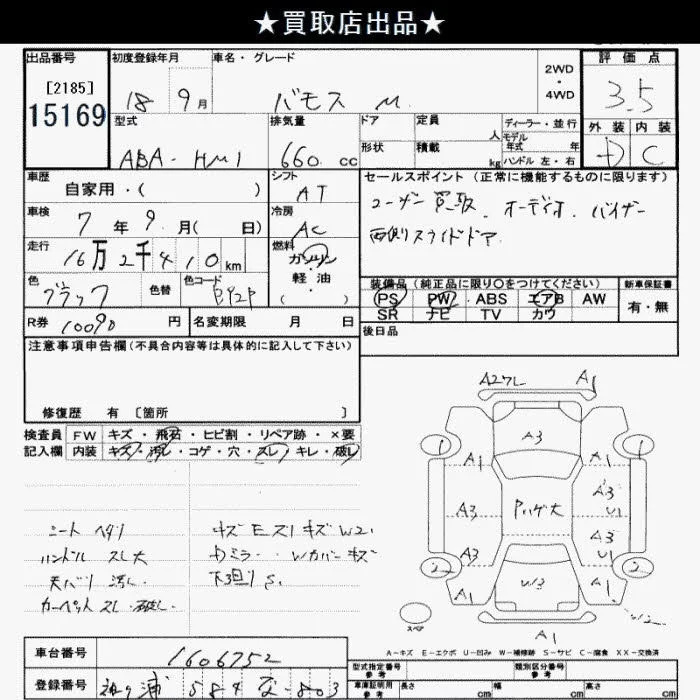 ★買取店出品★
出品番号 初度登録年月 車名・グレード 評価点
[2185] 2WD
15169 18 9月 バモス M ・ 3.5
4WD
型式 排気量 ドア 定員 ディーラー・並行 外装 内装
人 モデル
ABA-HM1 660 cc 形状 積載 年式 年 D C
kg ハンドル 左・右
車歴 シフト セールスポイント(正常に機能するものに限ります)
自家用・( ) AT ユーザー買取、オーディオ、バイザー
車検 7年 9月( 日) 冷房 両側スライドドア
AC
走行 16万2千410km 燃料
ガソリン
色 色替 色コード ・ 装備品(純正品に限り○をつけてください) 新車保証書
ブラック B92P 軽油 PS PW ABS エアB AW 有・無
( ) SR ナビ TV カワ
R券 10090円 名変期限 月 日 後日品
注意事項申告欄(不具合内容等は具体的に記入して下さい)
修復歴 有 〔箇所 〕
検査員 FW キズ・飛石・ヒビ割・リペア跡・×要
記入欄 内装 キズ・汚レ・コゲ・穴・スレ・キレ・破レ
シート ヘタリ
ハンドル スレ大
天バリ 汚レ
カーペット スレ・破レ
キズ E スリキズ W2
ミラー Wカバーキズ
下廻り S
A27L A1
A3
1 A1 A1 1
A3 Pハゲ大 A3
U1
A3 A3
U1
2 A1 W3 A1 2
W2
スペア A1
A-キズ E-エクボ U-凹み W-補修跡 S-サビ C-腐食 XX-交換済
車台番号 1606752
登録番号 袖ヶ浦 584 な -803
型式指定番号 参考 類別区分番号 参考
車庫証明用 参考 長さ cm 幅 cm 高さ cm